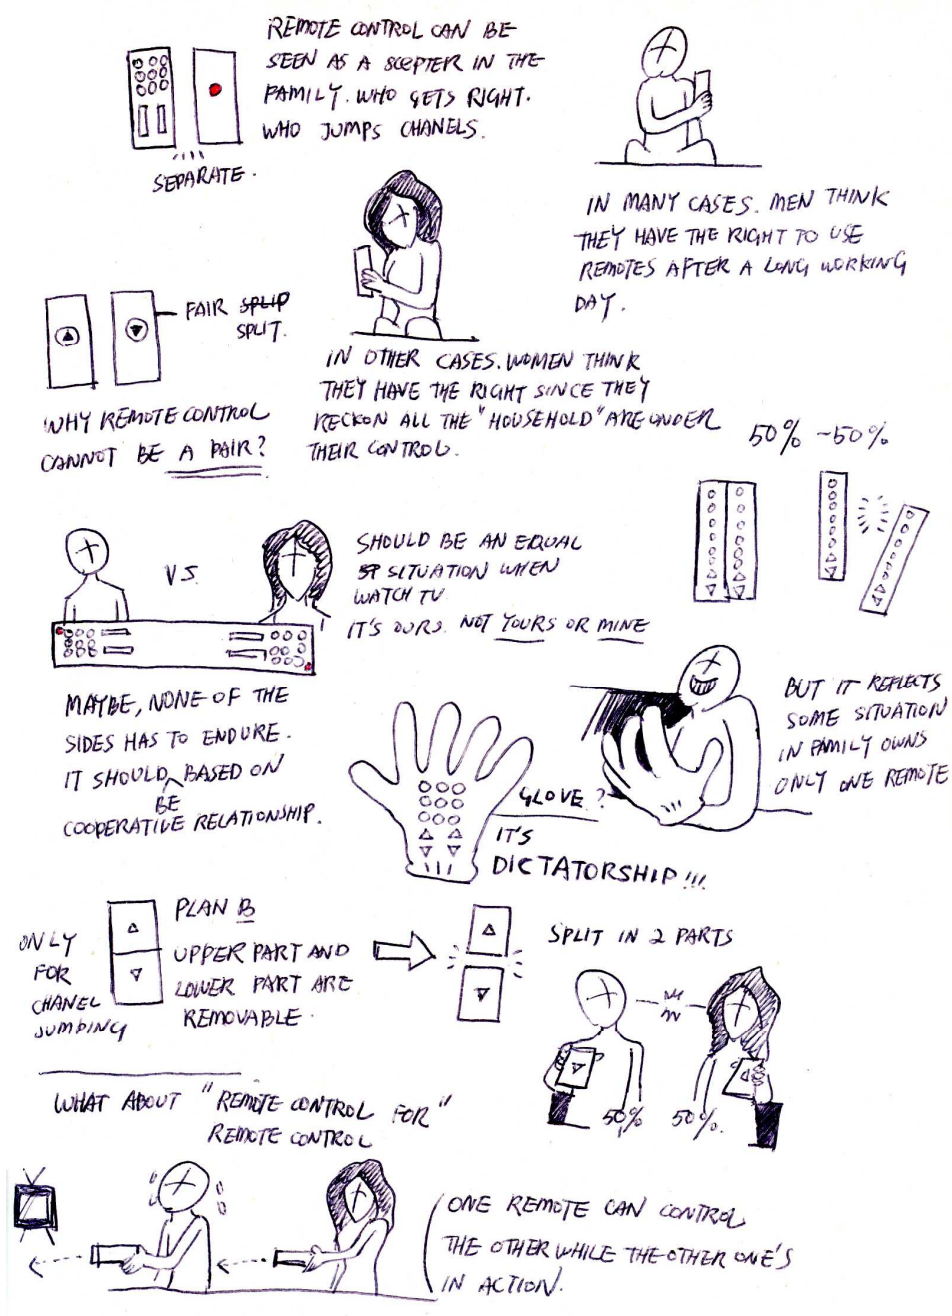 REMOTE CONTROL CAN BE
SEEN AS A SCEPTER IN THE
FAMILY. WHO GETS RIGHT.
WHO JUMPS CHANELS.
SEPARATE.
IN MANY CASES. MEN THINK
THEY HAVE THE RIGHT TO USE
REMOTES AFTER A LONG WORKING
DAY.
FAIR SPLIP
SPLIT.
WHY REMOTE CONTROL
CANNOT BE A PAIR?
IN OTHER CASES. WOMEN THINK
THEY HAVE THE RIGHT SINCE THEY
RECKON ALL THE "HOUSEHOLD" ARE UNDER
THEIR CONTROL.
50% -50%
VS.
SHOULD BE AN EQUAL
SP SITUATION WHEN
WATCH TV
IT'S OURS. NOT YOURS OR MINE
MAYBE, NONE OF THE
SIDES HAS TO ENDURE.
IT SHOULD BASED ON
BE
COOPERATIVE RELATIONSHIP.
BUT IT REFLECTS
SOME SITUATION
IN FAMILY OWNS
ONLY ONE REMOTE
GLOVE?
IT'S
DICTATORSHIP!!!
ONLY
FOR
CHANEL
JUMPING
PLAN B
UPPER PART AND
LOWER PART ARE
REMOVABLE.
SPLIT IN 2 PARTS
50% 50%.
WHAT ABOUT "REMOTE CONTROL FOR"
REMOTE CONTROL
ONE REMOTE CAN CONTROL
THE OTHER WHILE THE OTHER ONE'S
IN ACTION.